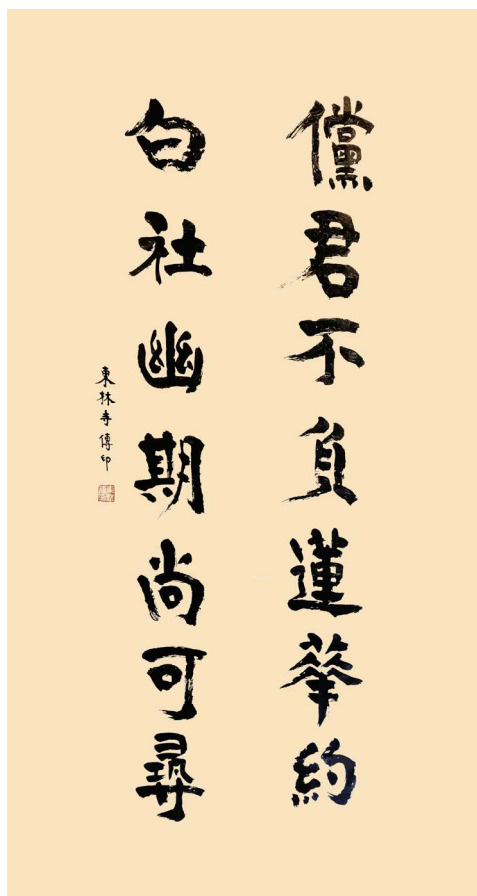 儻君不負蓮華約
白社幽期尚可尋
東林寺傳印